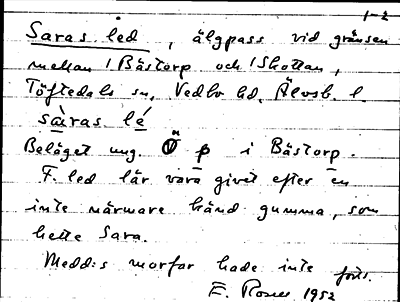 1-2
Saras led, älgpass vid gränsen
mellan /Bästorp och /Skottan,
Töftedals sn, Vedbo hd, Älvsb. l.
sàras lé
Beläget ung. Ö p i Bästorp.
F. led lär vara givet efter en
inte närmare känd gumma, som
hette Sara.
Medd:s morfar hade inte
E. Rosen 1952